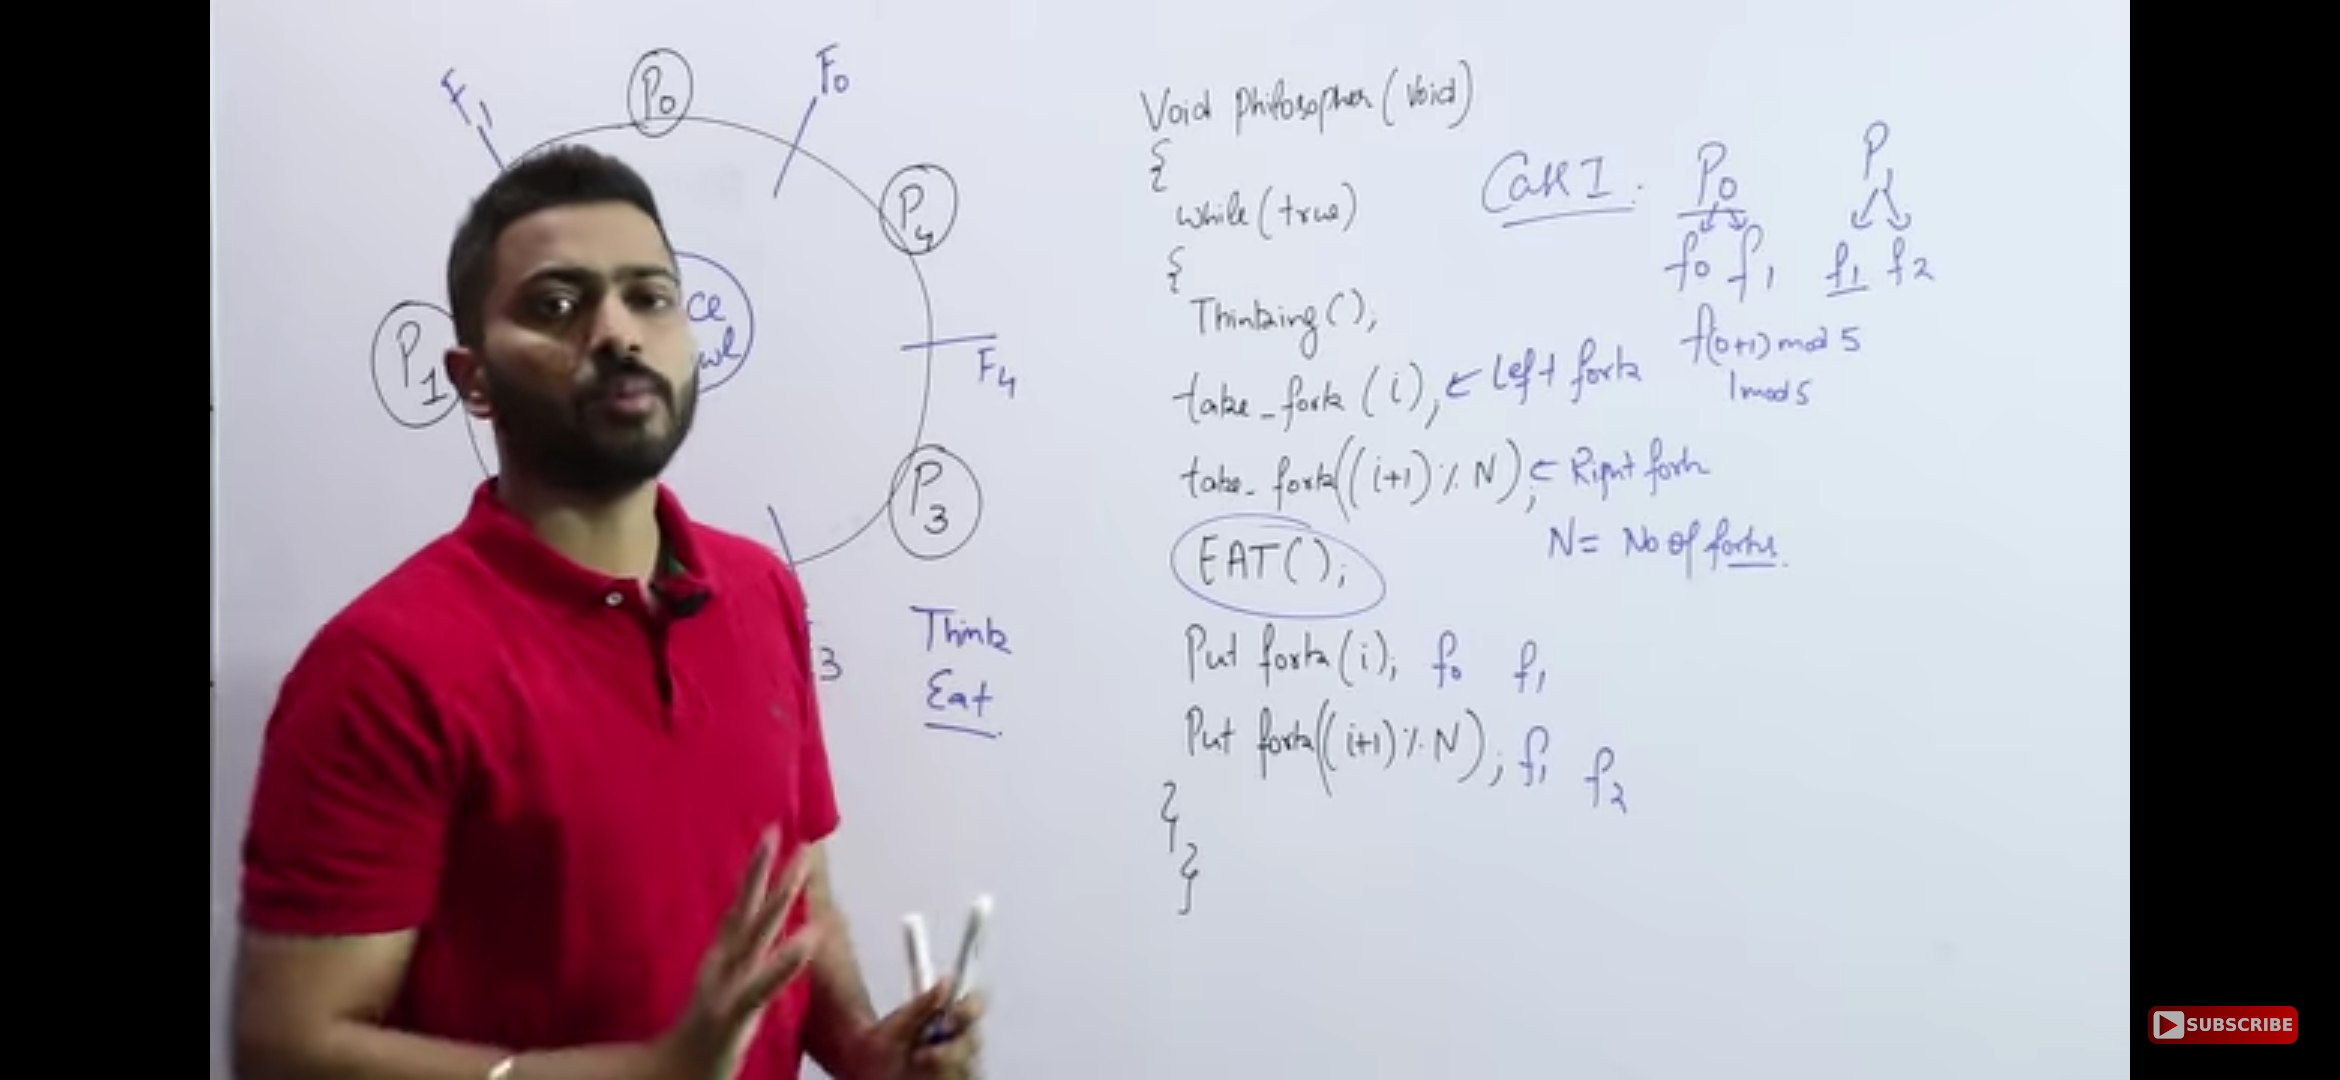 F1
P0
F0
P4
P1
ce
wl
F4
P3
3
Think
Eat
Void Philosopher (Void)
{
while (true)
{
Thinking();
take_fork (i); ← Left fork
take_fork((i+1) % N); ← Right fork
N = No of forks.
EAT();
Put fork(i); f0 f1
Put fork((i+1) % N); f1 f2
}
}
Case I. P0 P1
f0 f1 f1 f2
f(0+1) mod 5
1 mod 5
SUBSCRIBE